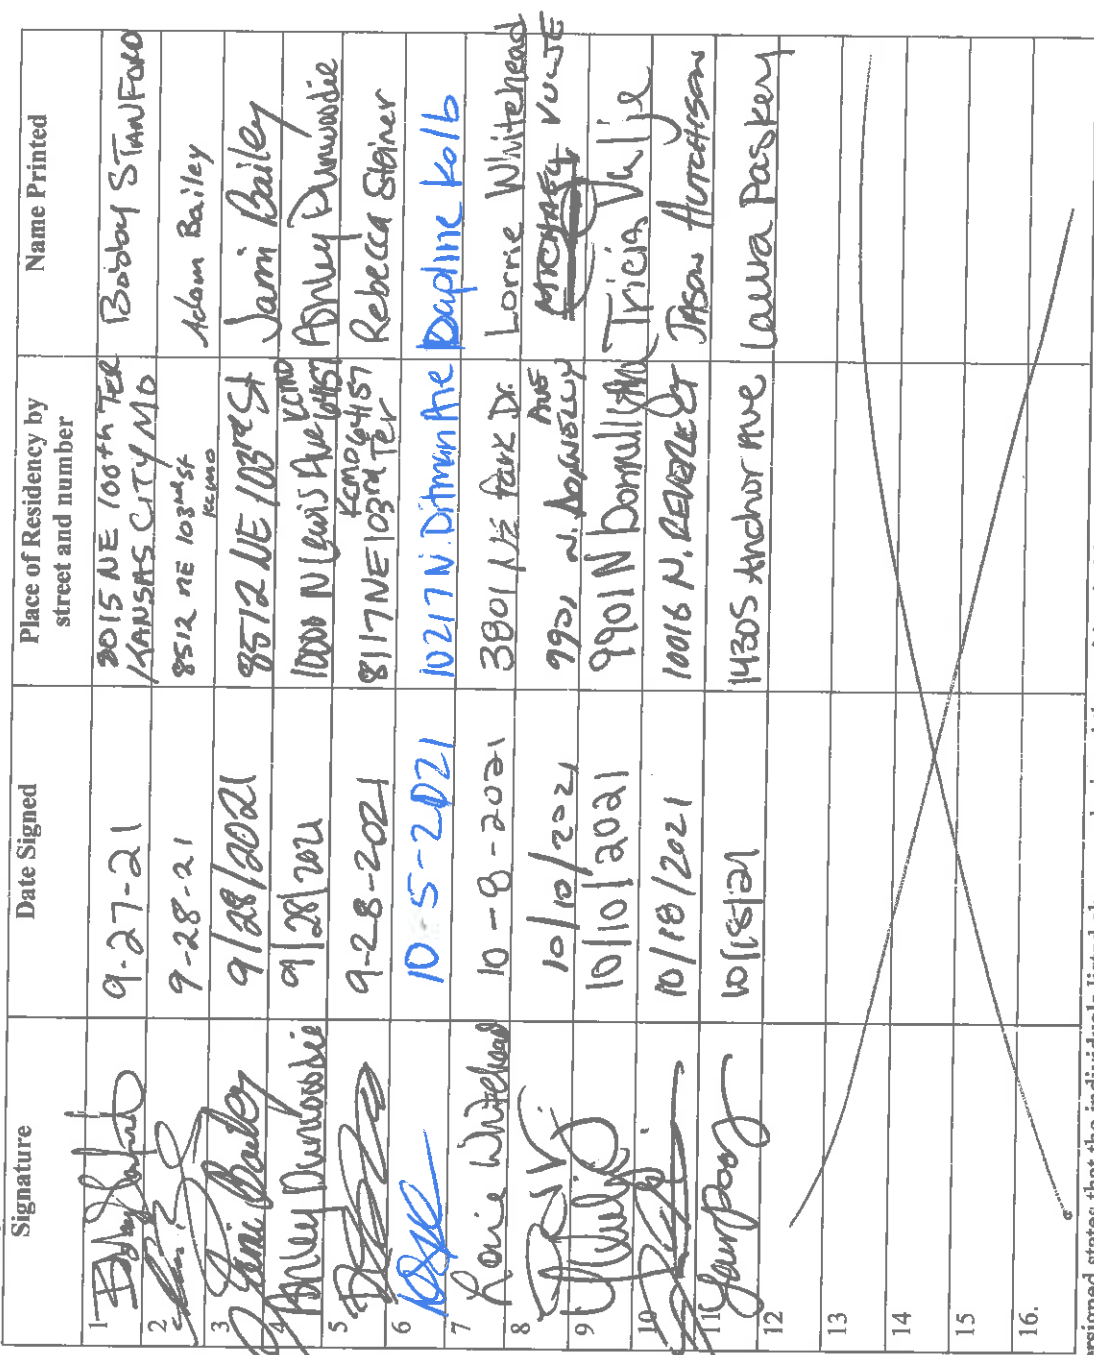 Signature Date Signed Place of Residency by street and number Name Printed
1 9-27-21 2015 NE 100th TER KANSAS CITY MO Bobby STANFORD
2 9-28-21 8512 NE 103rd St KCMO Adam Bailey
3 Jami Bailey 9/28/2021 8512 NE 103rd St Jami Bailey
4 Ashley Dunwoodie 9/28/2021 10000 N Lewis Ave KCMO 64157 Ashley Dunwoodie
5 9-28-2021 8117 NE 103rd Ter KCMO 64157 Rebecca Steiner
6 10-5-2021 10217 N. Ditman Ave Daphne Kolb
7 Lorrie Whitehead 10-8-2021 3801 NE Park Dr. Lorrie Whitehead
8 10/10/2021 9901 N. DONNELLY AVE MICHAEL VULJE
9 10/10/2021 9901 N Donnelly Ave Tricia Vulje
10 10/18/2021 10016 N. REVERE CT JASON HUTCHISON
11 10/18/21 14305 Anchor Ave Laura Paskery
12
13
14
15
16.
ersigned states that the individuals listed